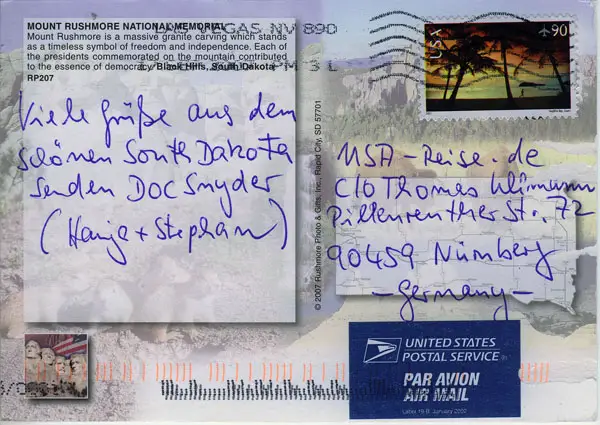 MOUNT RUSHMORE NATIONAL MEMORIAL
Mount Rushmore is a massive granite carving which stands
as a timeless symbol of freedom and independence. Each of
the presidents commemorated on the mountain contributed
to the essence of democracy. Black Hills, South Dakota
RP207
LAS VEGAS NV 890
USA
90
Viele Grüße aus dem
schönen South Dakota
senden DOC Snyder
(Hanja + Stephan)
© 2007 Rushmore Photo & Gifts, Inc., Rapid City, SD 57701
USA-Reise.de
C/O Thomas
Pillenreuther Str. 72
90459 Nürnberg
- Germany -
UNITED STATES
POSTAL SERVICE
PAR AVION
AIR MAIL
Label 19-B January 2002